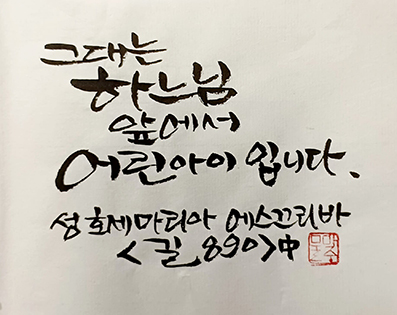 그대는
하느님
앞에서
어린아이 입니다.
성 호제마리아 에스끄리바
<길 890>中